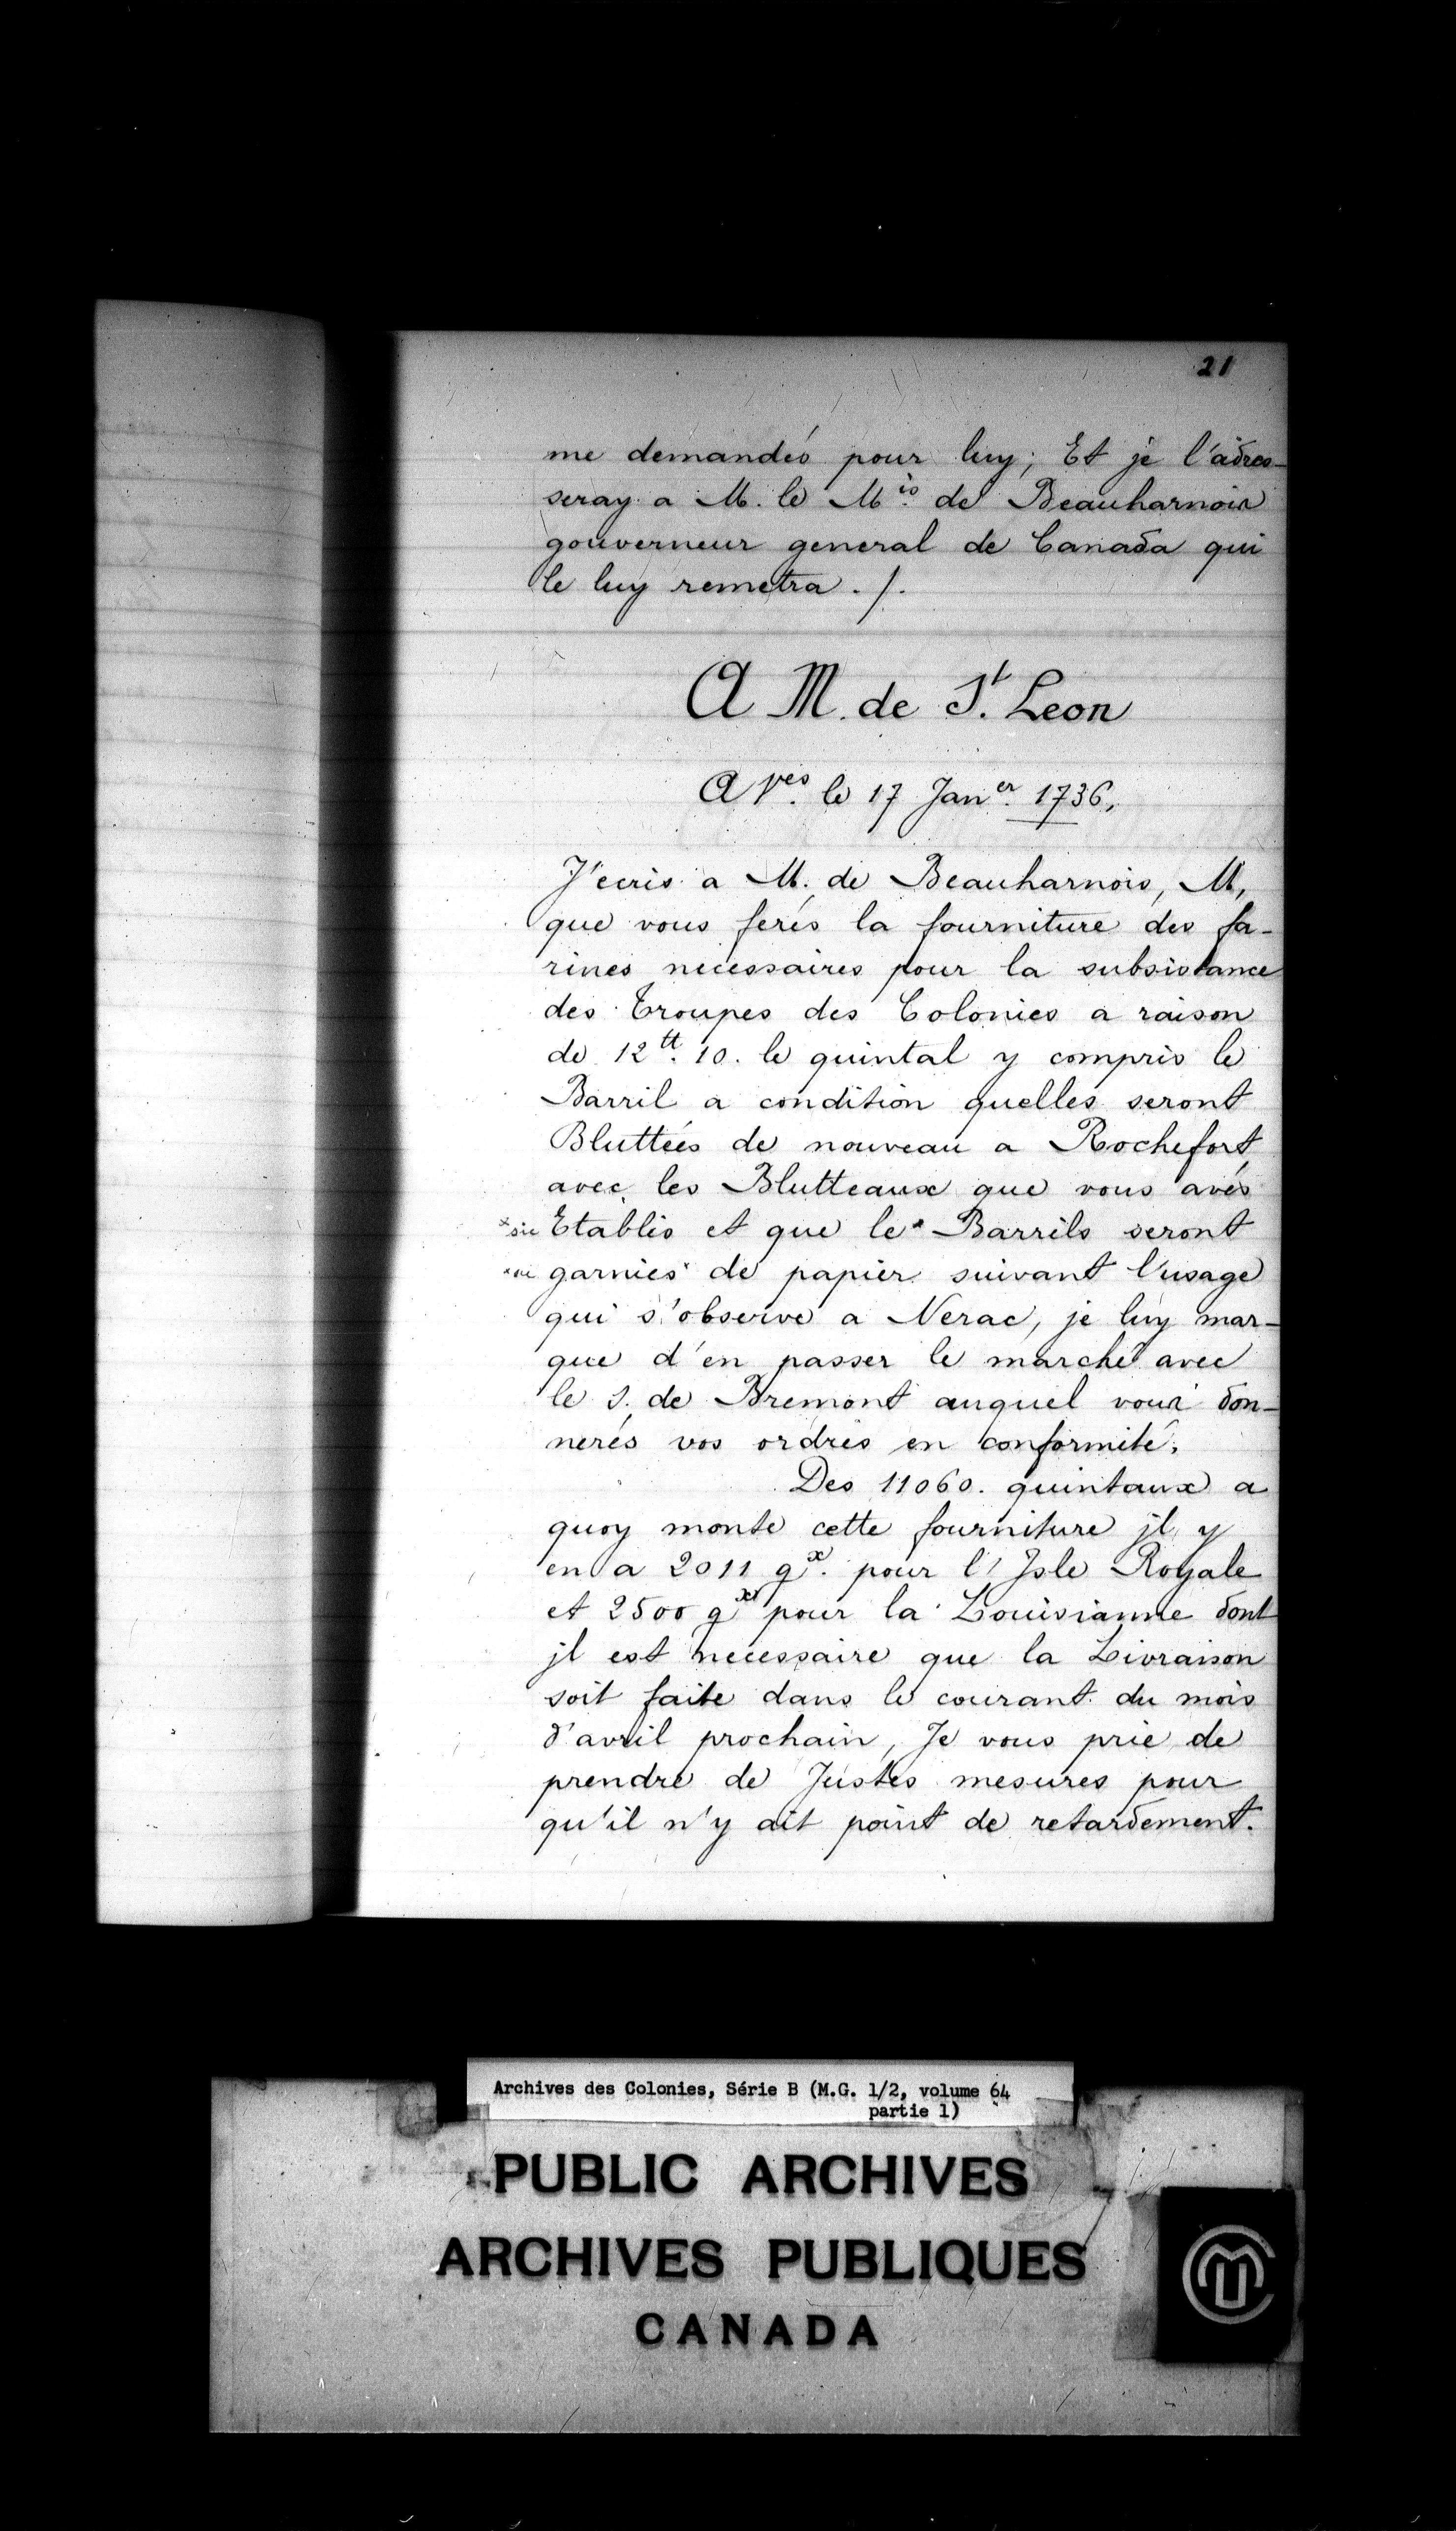 21
me demandés pour luy; Et je l'adres-
seray a M. le M.is de Beauharnois
gouverneur general de Canada qui
le luy remetra ./.
A M. de St. Leon
A Ves. le 17 Janer. 1736.
J'ecris a M. de Beauharnois, M,
que vous ferés la fourniture des fa-
rines necessaires pour la subsistance
des Troupes des Colonies a raison
de 12tt. 10. le quintal y compris le
Barril a condition quelles seront
Bluttées de nouveau a Rochefort,
avec les Blutteaux que vous avés
x sic Etablis et que le x Barrils seront
x sic garnies x de papier suivant l'usage
qui s'observe a Nerac, je luy mar-
que d'en passer le marché avec
le S. de Bremont auquel vous don-
nerés vos ordres en conformité.
Des 11060. quintaux a
quoy monte cette fourniture jl y
en a 2011 qx. pour l'Isle Royale
et 2500 qx pour la Louisianne dont
jl est necessaire que la Livraison
soit faite dans le courant du mois
d'avril prochain, Je vous prie de
prendre de Justes mesures pour
qu'il n'y ait point de retardement.
Archives des Colonies, Série B (M.G. 1/2, volume 64
partie 1)
PUBLIC ARCHIVES
ARCHIVES PUBLIQUES
CANADA